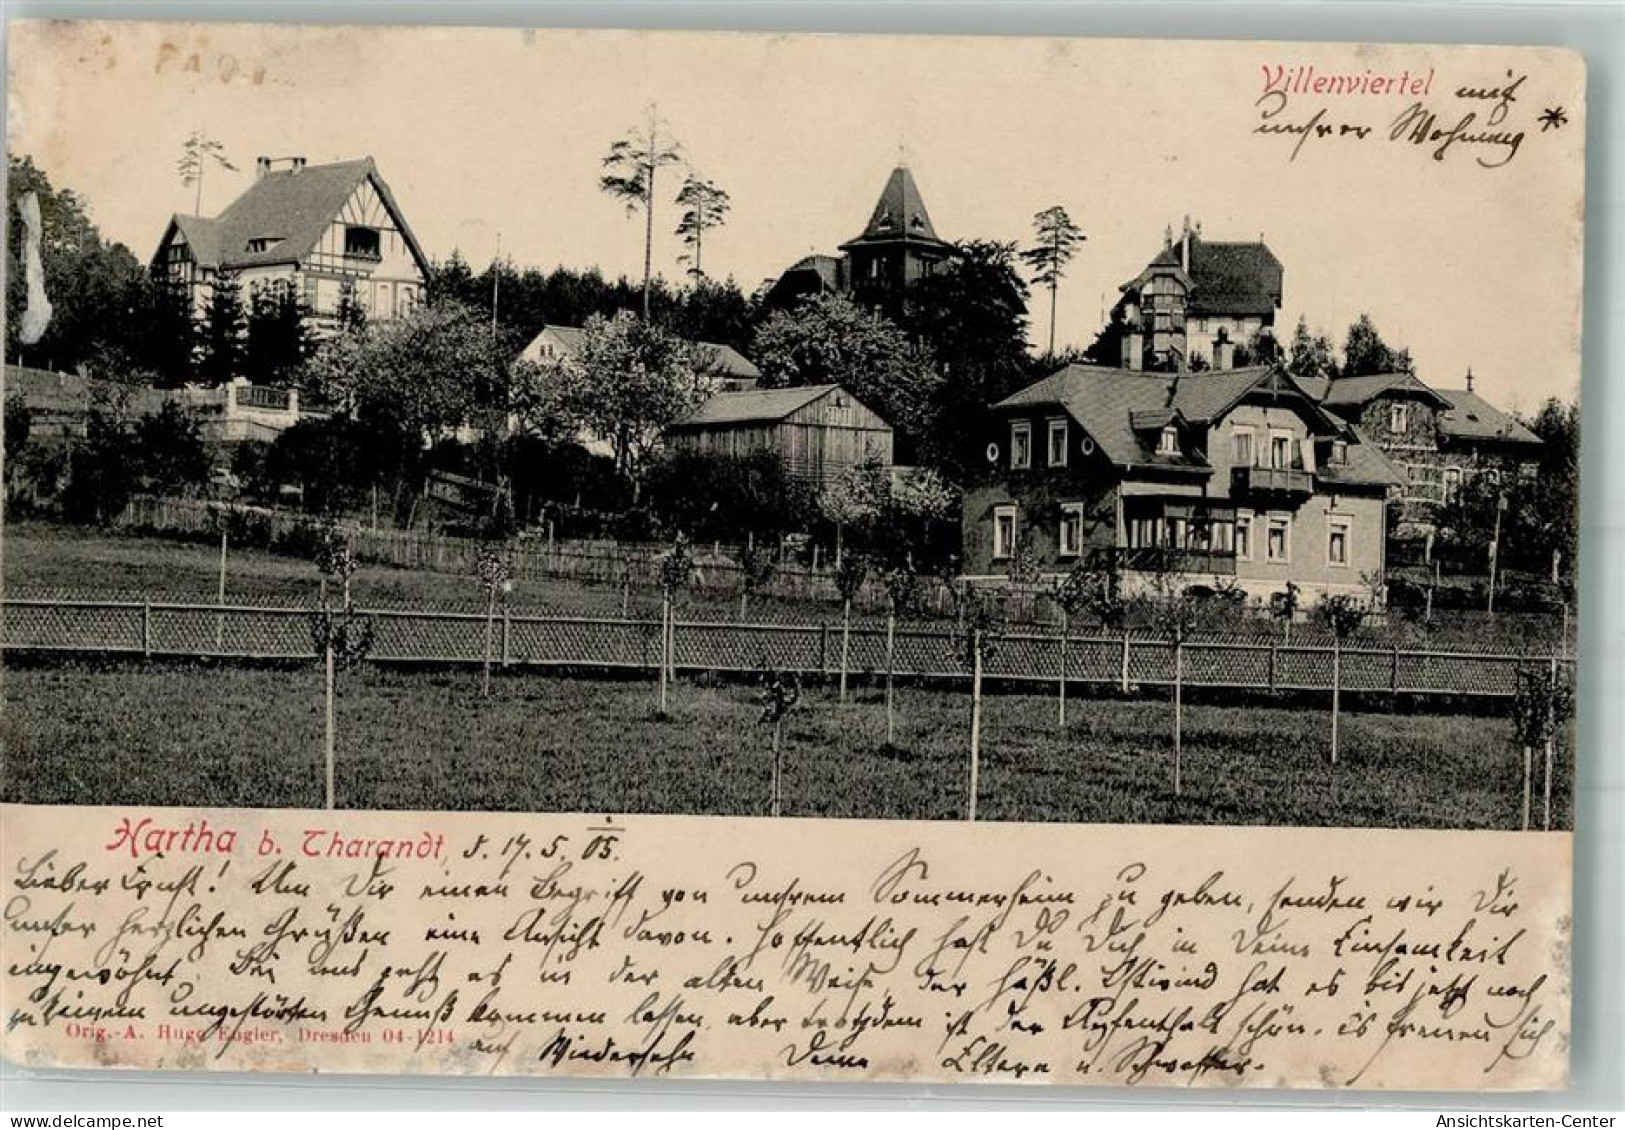 Villenviertel mit
unsrer Wohnung *
Hartha b. Tharandt, d. 17. 5. 05.
Lieber Ernst! Um Dir einen Begriff von unsrem Sommerheim zu geben, senden wir Dir
unter herzlichen Grüßen eine Ansicht davon. Hoffentlich hast Du Dich in Deine Einsamkeit
eingewöhnt. Bei uns geht es in der alten Weise, der häßl. Ostwind hat es bis jetzt noch
zu keinem ungestörten Genuß kommen lassen, aber trotzdem ist der Aufenthalt schön. Es freuen sich
Orig.-A. Hugo Engler, Dresden 04-1214
auf Wiedersehn Deine Eltern u. Schwester.
Ansichtskarten-Center